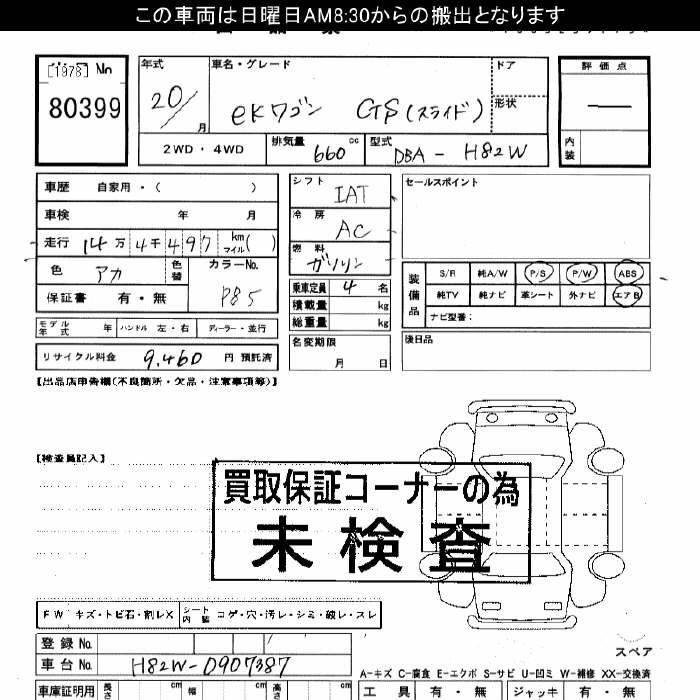 この車両は日曜日AM8:30からの搬出となります
[1978] No
80399
年式 20/ 月
車名・グレード ekワゴン GS(スライド)
ドア
形状
評価点
―
内装
2WD・4WD
排気量 660 cc
型式 DBA-H82W
車歴 自家用・( )
車検 年 月
走行 14万4千497 km マイル( )
色 アカ 色替 カラーNo. P85
保証書 有・無
モデル年式 年 ハンドル 左・右 ディーラー・並行
リサイクル料金 9,460 円 預託済
シフト IAT
冷房 AC
燃料 ガソリン
乗車定員 4 名
積載量 kg
総重量 kg
名変期限
月 日
セールスポイント
装備品
S/R 純A/W P/S P/W ABS
純TV 純ナビ 革シート 外ナビ エアB
ナビ型番:
後日品
【出品店申告欄(不良箇所・欠品・注意事項等)】
【検査員記入】
買取保証コーナーの為
未検査
FW キズ・トビ石・割レX
シート内装 コゲ・穴・汚レ・シミ・破レ・スレ
登録No.
車台No. H82W-0907387
車庫証明用 長さ cm 幅 cm 高さ cm
スペア
A-キズ C-腐食 E-エクボ S-サビ U-凹ミ W-補修 XX-交換済
工具 有・無 ジャッキ 有・無